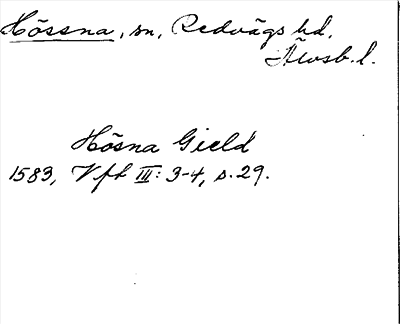 Hössna, sn, Redvägs hd,
Älvsb. l.
Hösna Gield
1583, Vfk III: 3-4, s. 29.